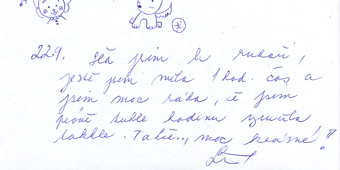 22.9. Šla jsem k rukaři,
ještě jsem měla 1 hod. čas a
jsem moc ráda, že jsem
právě tuhle hodinu využila
takhle. Takže.., moc krásné!!